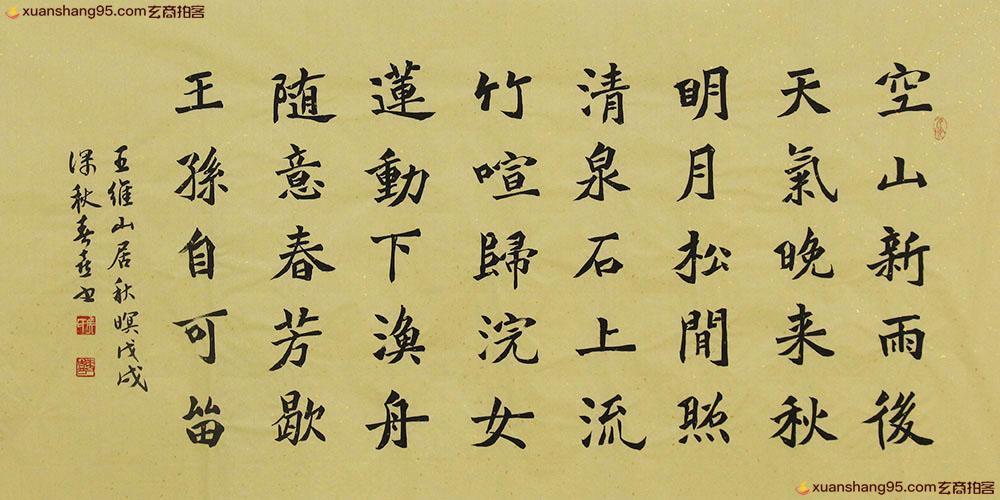 xuanshang95.com玄商拍客
空山新雨後
天氣晚来秋
明月松間照
清泉石上流
竹喧歸浣女
蓮動下漁舟
随意春芳歇
王孫自可留
王維山居秋暝戊戌
深秋春喜书
xuanshang95.com玄商拍客